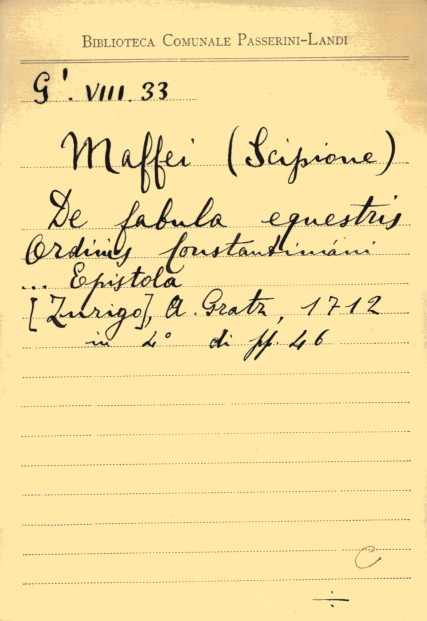 BIBLIOTECA COMUNALE PASSERINI-LANDI
G'. VIII. 33
Maffei (Scipione)
De fabula equestris
Ordinis Constantiniani
... Epistola
[Zurigo], A. Gratz, 1712
in 4° di pp. 46
C